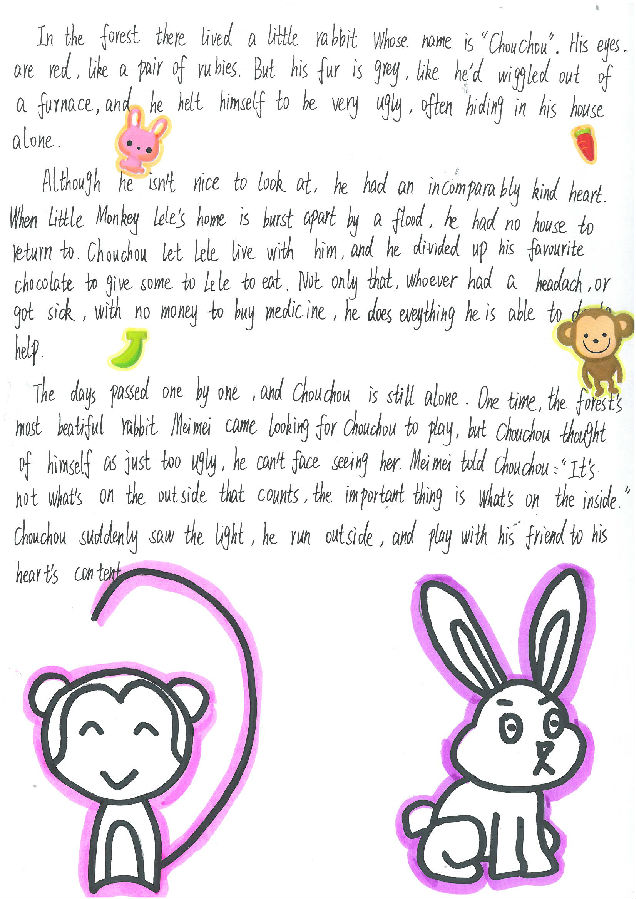 In the forest there lived a little rabbit whose name is "Chouchou". His eyes
are red, like a pair of rubies. But his fur is grey, like he'd wiggled out of
a furnace, and he helt himself to be very ugly, often hiding in his house
alone.
Although he isn't nice to look at, he had an incomparably kind heart.
When Little Monkey Lele's home is burst apart by a flood, he had no house to
return to. Chouchou let Lele live with him, and he divided up his favourite
chocolate to give some to Lele to eat. Not only that, whoever had a headach, or
got sick, with no money to buy medicine, he does eveything he is able to
help.
The days passed one by one, and Chouchou is still alone. One time, the forest's
most beatiful rabbit Meimei came looking for Chouchou to play, but Chouchou thought
of himself as just too ugly, he can't face seeing her. Meimei told Chouchou: "It's
not what's on the outside that counts, the important thing is what's on the inside."
Chouchou suddenly saw the light, he run outside, and play with his friend to his
heart's content